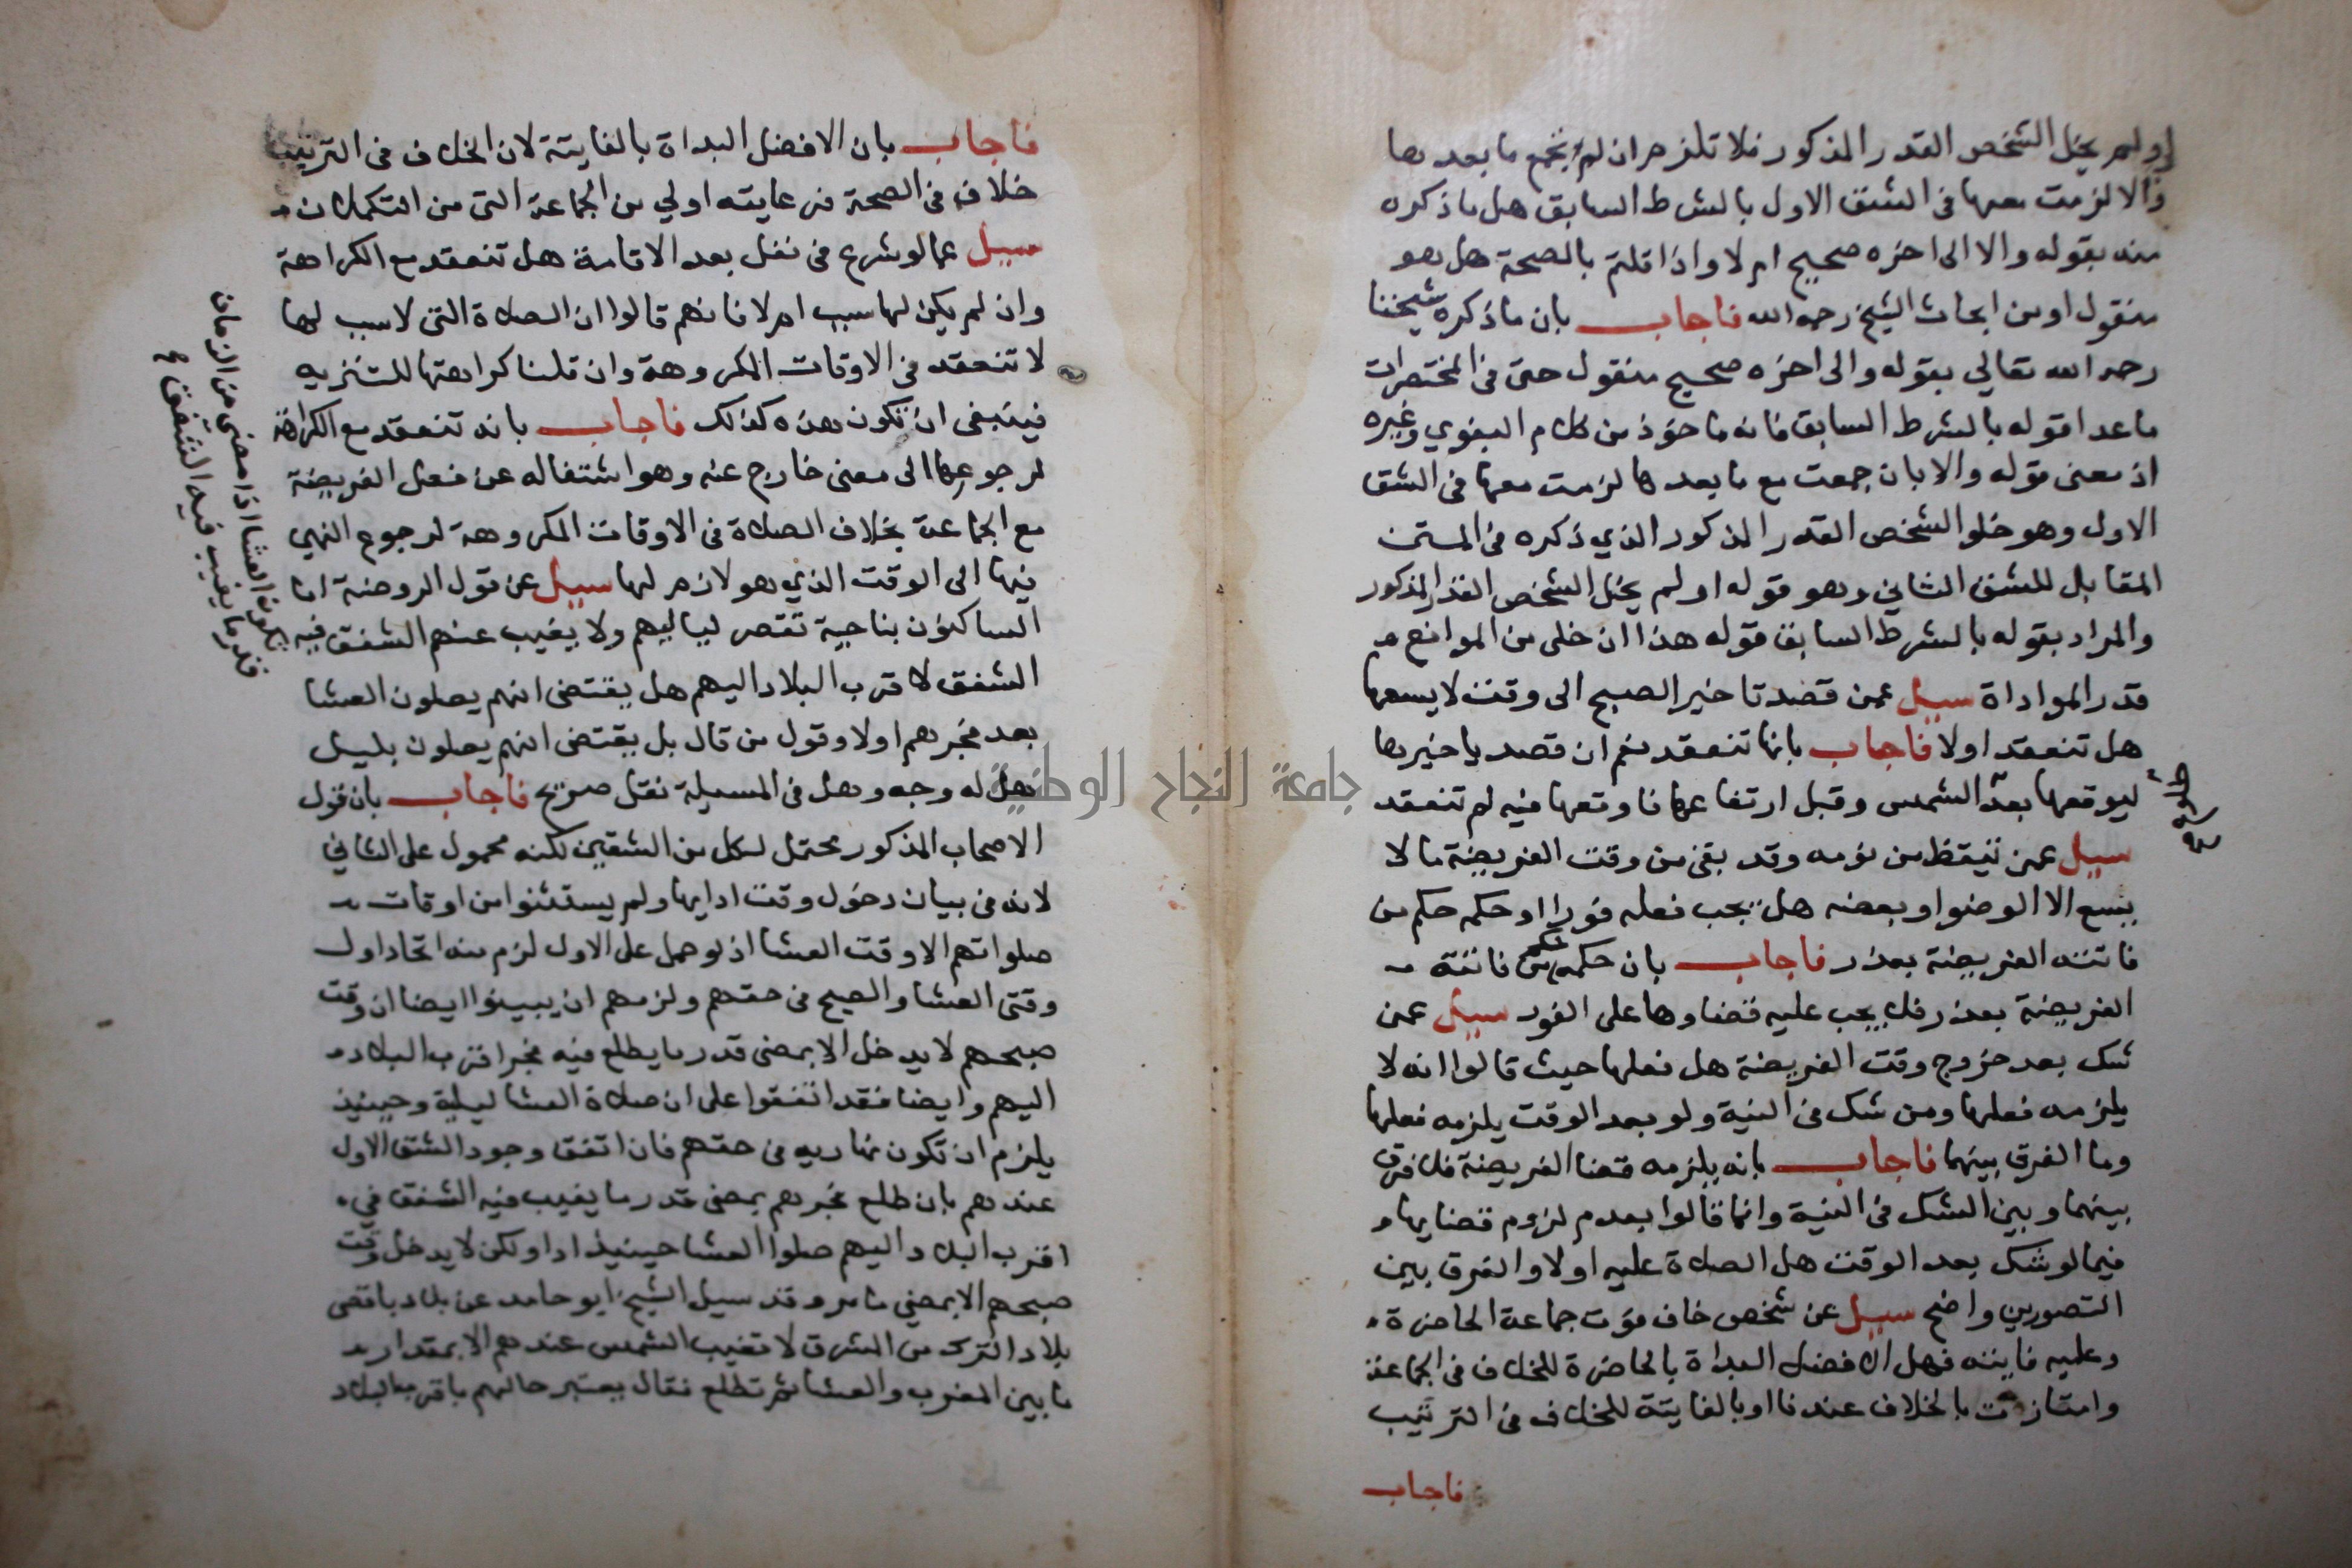 او لم يخل الشخص القدر المذكور فلا تلزم ان لم تجمع ما بعدها
والا لزمت معها في الشق الاول بالشرط السابق هل ما ذكره
منه بقوله والا الى اخره صحيح ام لا واذا قلتم بالصحة هل هو
منقول او من ابحاث الشيخ رحمه الله فاجاب بان ما ذكره شيخنا
رحمه الله تعالي بقوله والى اخره صحيح منقول حتى في المختصرات
ما عدا قوله بالشرط السابق فانه ماخوذ من كلام البغوي وغيره
اذ معنى قوله والا بان جمعت مع ما بعدها لزمت معها في الشق
الاول وهو خلو الشخص القدر المذكور الذي ذكره في المتن
المقابل للشق الثاني وهو قوله او لم يخل الشخص القدر المذكور
والمراد بقوله بالشرط السابق قوله هذا ان خلى من الموانع
قدر المواداة سيل عمن قصد تاخير الصبح الى وقت لا يسعها
هل تنعقد اولا فاجاب بانها تنعقد نعم ان قصد ياخيرها
ليوقعها بعد الشمس وقبل ارتفاعها فاوقعها فيه لم تنعقد
طلوع
سيل عمن تيقظ من نومه وقد بقى من وقت الفريضة ما لا
يسع الا الوضوا وبعضه هل يجب فعله فورا او حكمه حكم من
فاتته الفريضة بعذر فاجاب بان حكمه حكم من فاتته
الفريضة بعذر فلا يجب عليه قضاوها على الفور سيل عمن
شك بعد خروج وقت الفريضة هل فعلها حيث قالوا انه لا
يلزمه فعلها ومن شك في النية ولو بعد الوقت يلزمه فعلها
وما الفرق بينهما فاجاب بانه يلزمه قضا الفريضة فلا فرق
بينهما وبين الشك في النية وانما قالوا بعدم لزوم قضايها
فيما لو شك بعد الوقت هل الصلاة عليه اولا والفرق بين
التصورين واضح سيل عن شخص خاف فوت جماعة الحاضرة
وعليه فايتة فهل الافضل البداة بالحاضرة للخلاف في الجماعة
وامتازت بالخلاف عندنا او بالفايتة للخلاف في الترتيب
فاجاب
فاجاب بان الافضل البداة بالفايتة لان الخلاف في الترتيب
خلاف في الصحة فرعايته اولي من الجماعة التي من التكملات
سيل عما لو شرع في نفل بعد الاقامة هل تنعقد مع الكراهة
وان لم يكن لها سبب ام لا فانهم قالوا ان الصلاة التي لا سبب لها
لا تنعقد في الاوقات المكروهة وان قلنا كراهتها للتنزيه
فينبغي ان تكون هذه كذلك فاجاب بانه تنعقد مع الكراهة
لرجوعها الى معنى خارج عنه وهو اشتغاله عن فعل الفريضة
مع الجماعة بخلاف الصلاة في الاوقات المكروهة لرجوع النهي
فيها الى الوقت الذي هو لازم لها سيل عن قول الروضة اما
الساكنون بناحية تقصر لياليهم ولا يغيب عنهم الشفق فيه
تكون العشا اذا مضى من الزمان
قدر ما يغيب فيه الشفق
الشفق لاقرب البلاد اليهم هل يقتضى انهم يصلون العشا
بعد فجرهم اولا وقول من قال بل يقتضى انهم يصلون بليل
هل له وجه وهل في المسيلة نقل صريح فاجاب بان قول
الاصحاب المذكور محتمل لكل من الشقين لكنه محمول على الثاني
لانه في بيان دخول وقت ادايها ولم يستثنوا من اوقات
صلواتهم الا وقت العشا اذ لو حمل على الاول لزم منه اتحاد اول
وقتى العشا والصبح في حقهم ولزمهم ان يبينوا ايضا ان وقت
صبحهم لا يدخل الا بمضى قدر ما يطلع فيه فجر اقرب البلاد
اليهم وايضا فقد اتفقوا على ان صلاة العشا ليلية وحينيذ
يلزم ان تكون نهاريه في حقهم فان اتفق وجود الشق الاول
عندهم بان طلع فجرهم بمضى قدر ما يغيب فيه الشفق في
اقرب البلاد اليهم صلوا العشا حينيذ ادا ولكن لا يدخل وقت
صبحهم الا بمضي ما مر وقد سيل الشيخ ابو حامد عن بلاد باقصى
بلاد الترك من المشرق لا تغيب الشمس عندهم الا بمقدار
ما بين المغرب والعشا ثم تطلع فقال يعتبر حالهم باقرب البلاد
جامعة النجاح الوطنية